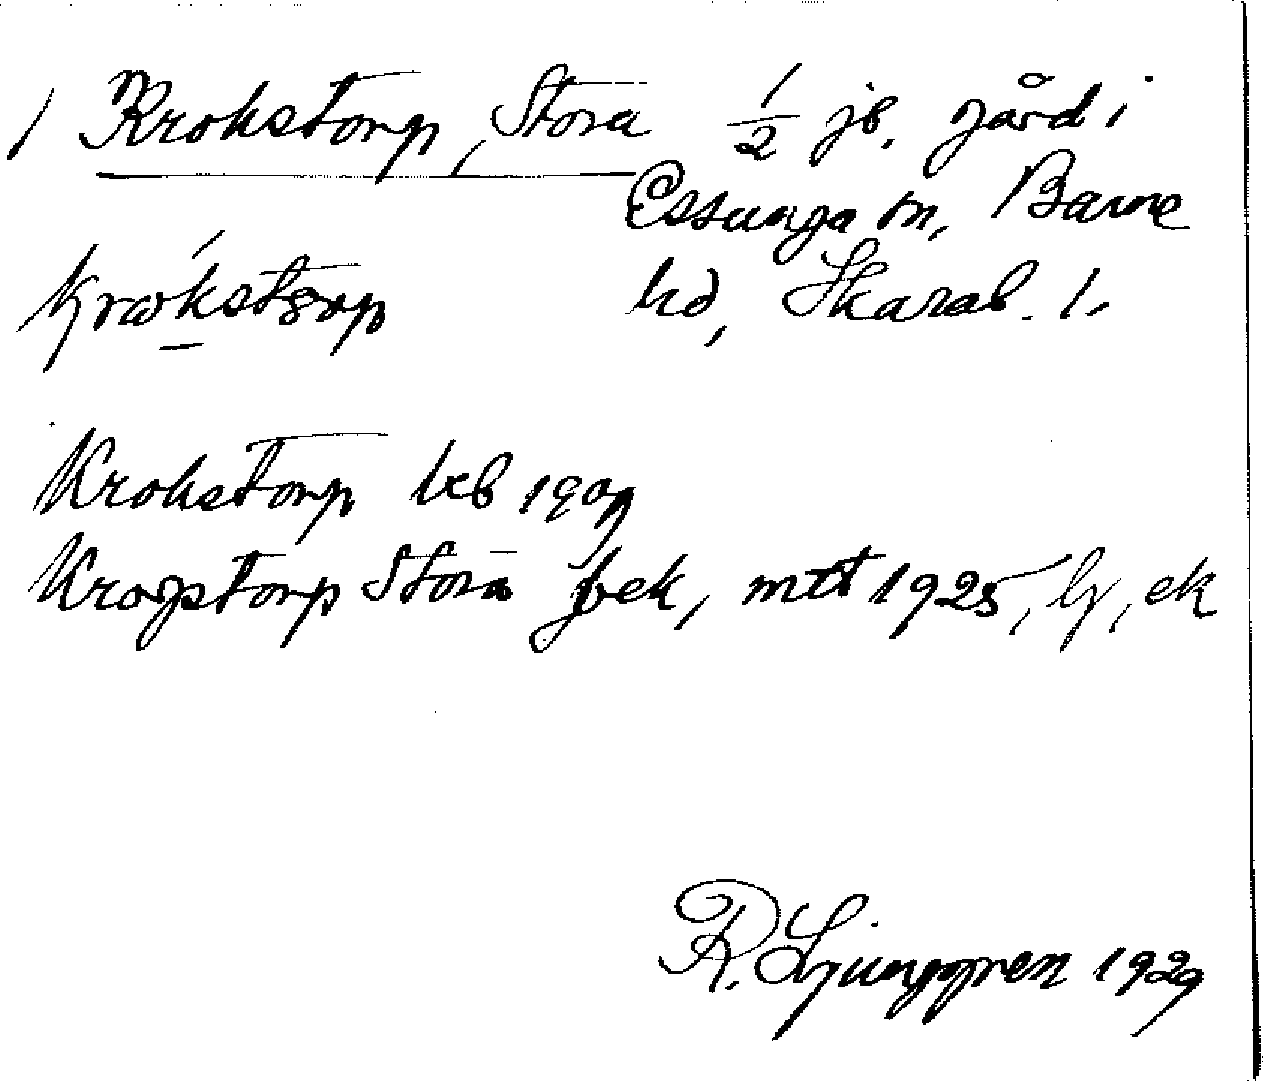 1 Krokstorp, Stora 1/2 jb. gård i
Essunga sn, Barne
hd, Skarab. l.
Krokstorp kb 1909
Kragstorp Stora jbek, mtt 1925, ly, ek
R. Ljunggren 1929